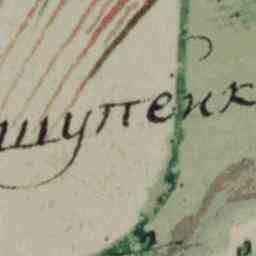 щупенк